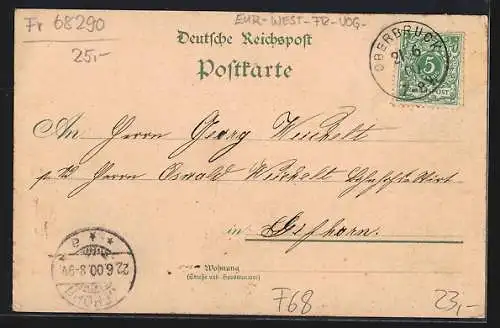 Fr 68290
EUR-WEST-FR-VOG-
25,-
Deutsche Reichspost
Postkarte
OBERBRUCK
21 6
5
An Herrn Georg Weichelt
Herrn Oswald Weichelt
in Gifhorn.
22.6.00.8-9V.
Wohnung
(Straße und Hausnummer)
F68
23,-